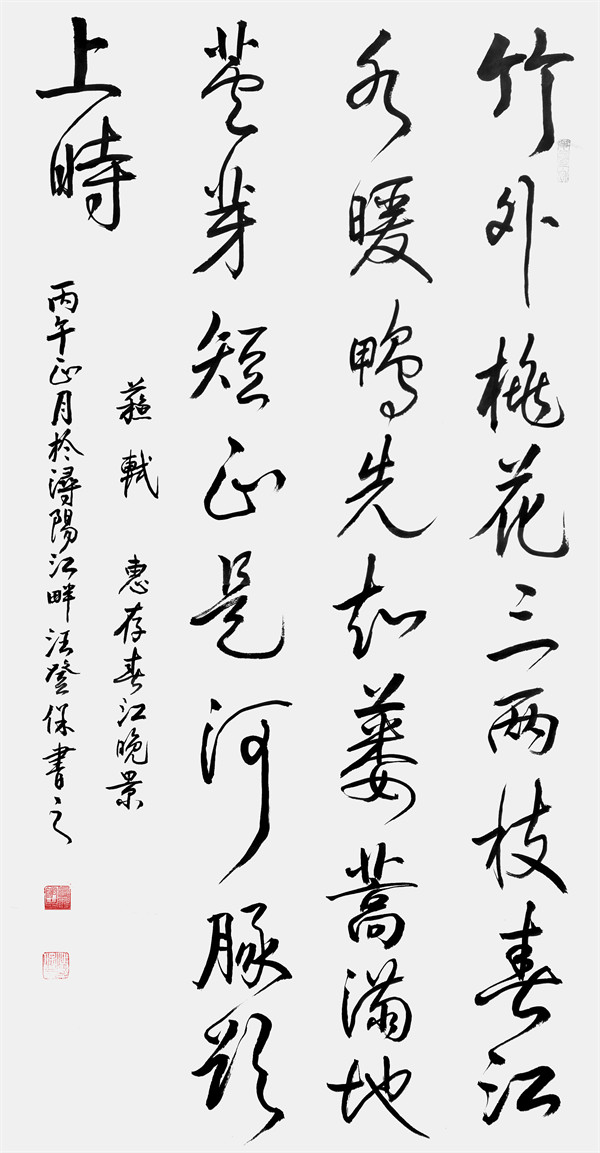 竹外桃花三两枝春江
水暖鸭先知蒌蒿满地
芦芽短正是河豚欲
上時
蘇軾 惠存春江晚景
丙午正月於潯陽江畔汪登保書之